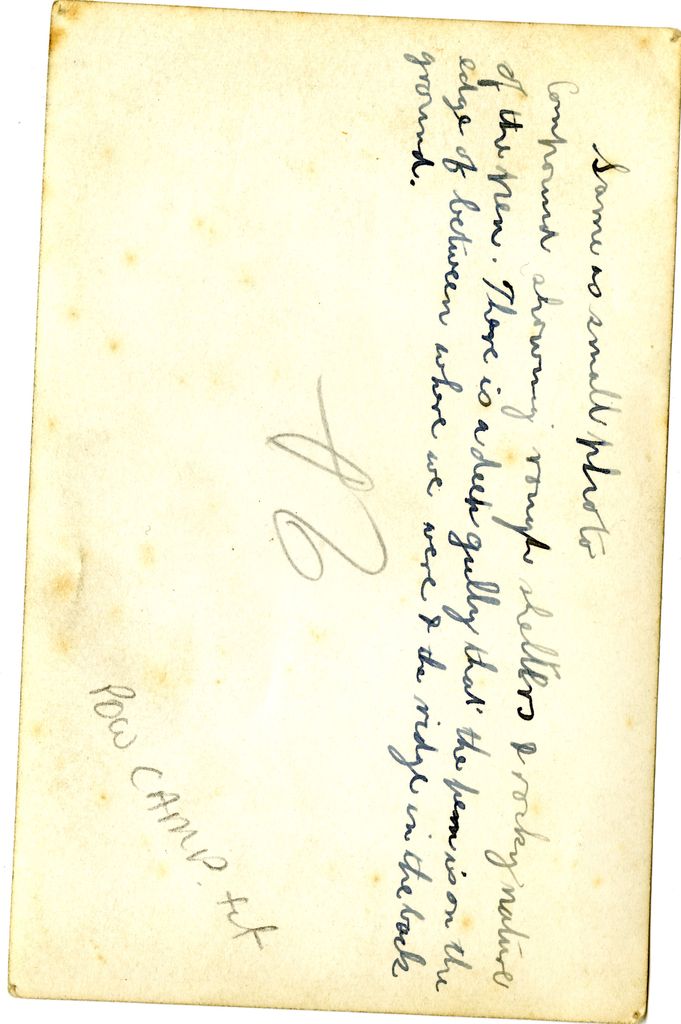 Same as small photo
Compound showing rough shelters & rocky nature
of the pen. There is a deep gully that the pen is on the
edge of between where we were & the ridge in the back
ground.
POW CAMP.